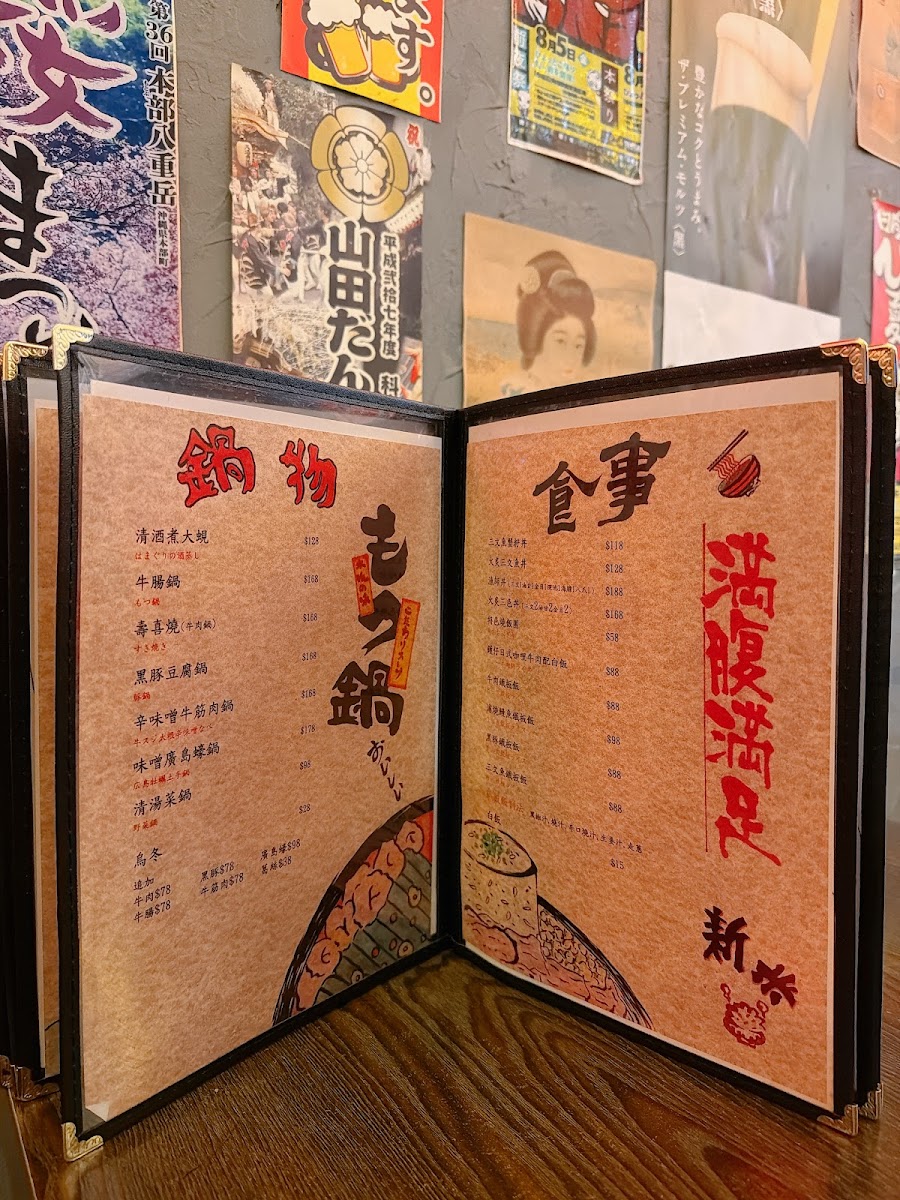 第36回 本部八重岳
沖縄県本部町
ます。
祝
平成弐拾七年度
山田だん
8月5日
本祭り
豊かなコクとうまみ。
ザ・プレミアム・モルツ〈黒〉
鍋物
清酒煮大蜆
$128
はまぐりの酒蒸し
牛腸鍋
$168
もつ鍋
壽喜燒(牛肉鍋)
$168
すき焼き
黒豚豆腐鍋
$168
豚鍋
辛味噌牛筋肉鍋
$168
牛スジ大根辛味噌なべ
味噌廣島蠔鍋
$178
広島牡蠣土手鍋
清湯菜鍋
$98
野菜鍋
烏冬
$28
追加
牛肉$78
牛腸$78
黒豚$78
牛筋肉$78
廣島蠔$98
もつ鍋
おいしい
食事
三文魚蟹籽丼
$118
火炙三文魚丼
$128
$188
火炙三色丼
$168
特色燒飯團
$58
日式咖喱牛肉配白飯
$88
牛肉鐵板飯
$88
蒲燒鰻魚鐵板飯
$98
黒豚鐵板飯
$88
三文魚鐵板飯
$88
白飯
$15
満腹満足
新米